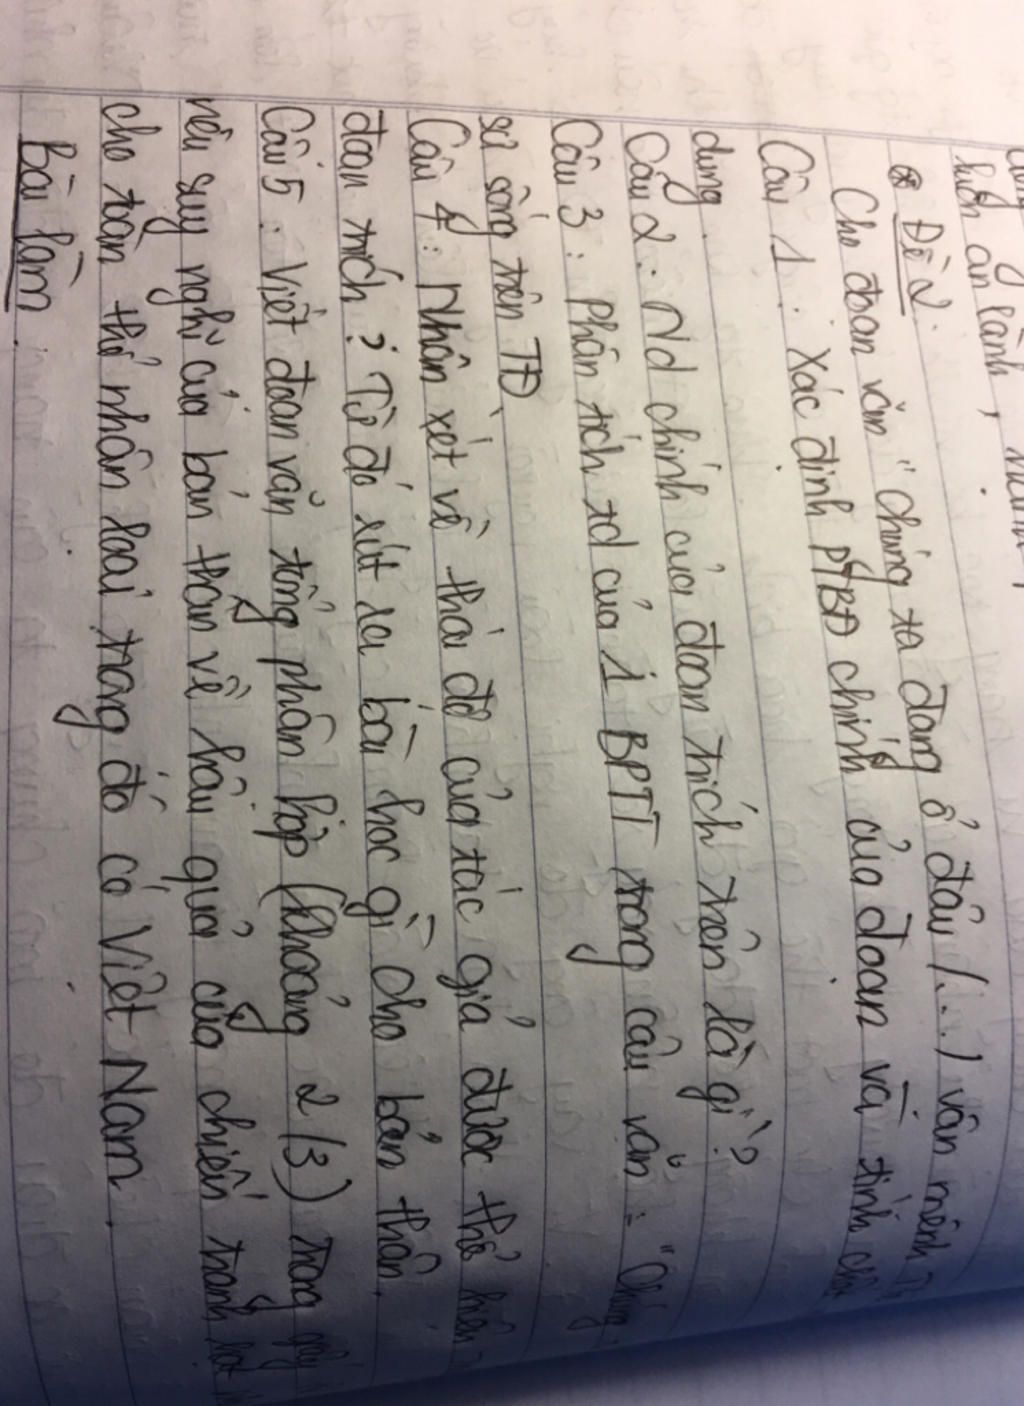 luôn an lành,
⊛ Đề 2.
Cho đoạn văn "Chúng ta đang ở đâu (...) vận mệnh
Câu 1: Xác định PTBĐ chính của đoạn và tính
dụng.
Câu 2: Nd chính của đoạn trích trên là gì?
Câu 3: Phân tích td của 1 BPTT trong câu văn: "Chúng
sự sống trên TĐ
Câu 4: Nhận xét về thái độ của tác giả được thể hiện
đoạn trích? Từ đó rút ra bài học gì cho bản thân.
Câu 5: Viết đoạn văn tổng phân hợp (khoảng 2/3) trang giấy
nêu suy nghĩ của bản thân về hậu quả của chiến tranh
cho toàn thể nhân loại trong đó có Việt Nam.
Bài làm